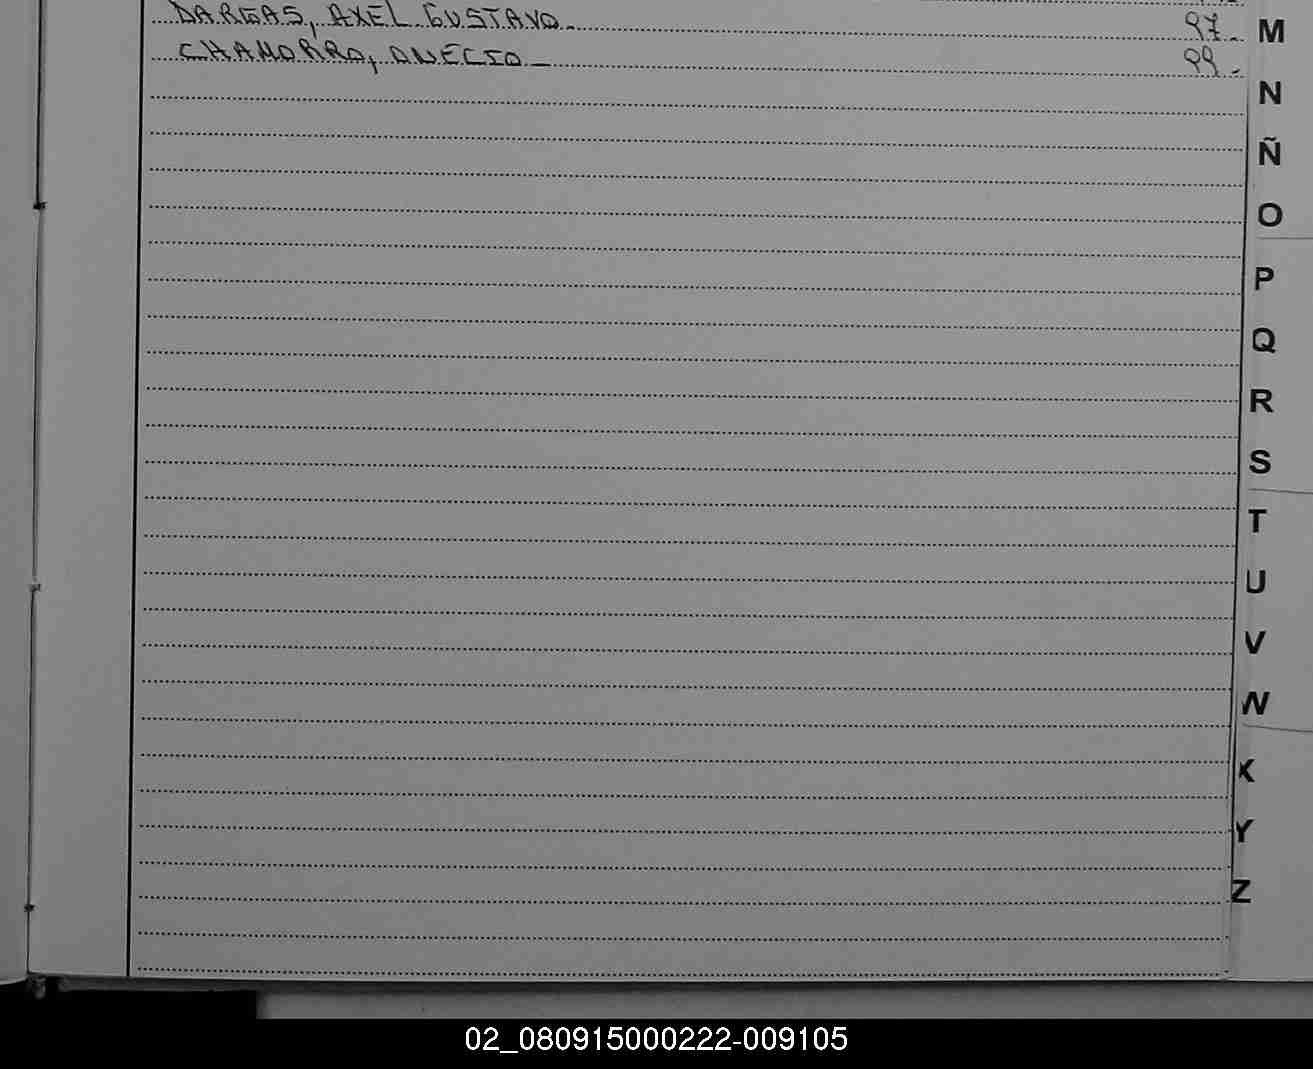 DARGAS, AXEL GUSTAVO. 97.-
CHAMORRO, ONECIO_ 99.-
M
N
Ñ
O
P
Q
R
S
T
U
V
W
X
Y
Z
02_080915000222-009105